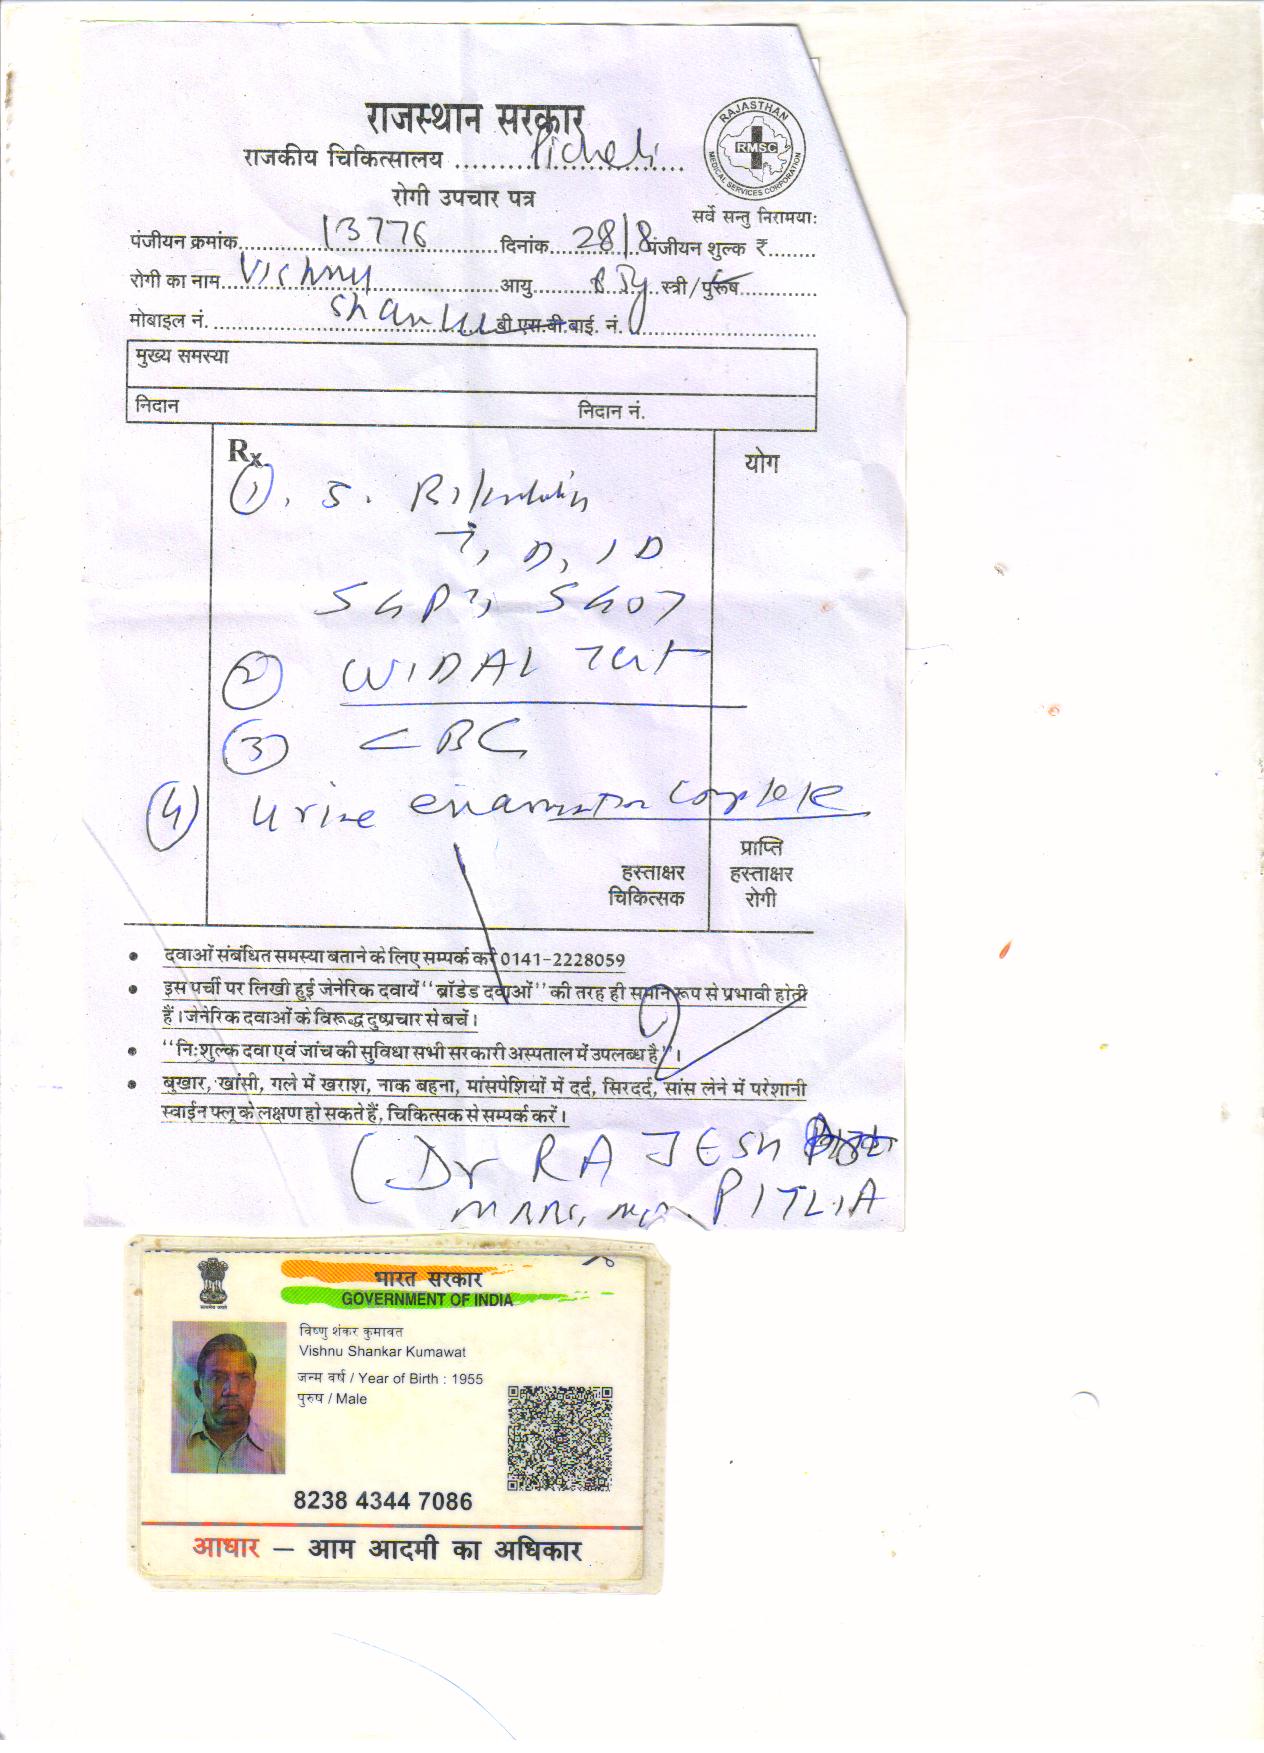 राजस्थान सरकार
राजकीय चिकित्सालय
रोगी उपचार पत्र
RAJASTHAN
RMSC
MEDICAL SERVICES CORPORATION
सर्वे सन्तु निरामयाः
पंजीयन क्रमांक 13776 दिनांक 28/8 पंजीयन शुल्क ₹
रोगी का नाम Vishnu आयु स्त्री/पुरूष
मोबाइल नं. Shankar बी एस बी बाई. नं.
मुख्य समस्या
निदान निदान नं.
Rx योग
1. S. Bilirubin
T, D, ID
SGPT, SGOT
2 WIDAL Test
3 CBC
4 Urine examination complete
हस्ताक्षर चिकित्सक
प्राप्ति हस्ताक्षर रोगी
• दवाओं संबंधित समस्या बताने के लिए सम्पर्क करें 0141-2228059
• इस पर्ची पर लिखी हुई जेनेरिक दवायें "ब्रॉडेड दवाओं" की तरह ही समान रूप से प्रभावी होती
हैं। जेनेरिक दवाओं के विरूद्ध दुष्प्रचार से बचें।
• "निःशुल्क दवा एवं जांच की सुविधा सभी सरकारी अस्पताल में उपलब्ध है"।
• बुखार, खांसी, गले में खराश, नाक बहना, मांसपेशियों में दर्द, सिरदर्द, सांस लेने में परेशानी
स्वाईन फ्लू के लक्षण हो सकते हैं, चिकित्सक से सम्पर्क करें।
(Dr RAJESH
PITLIA
भारत सरकार
GOVERNMENT OF INDIA
विष्णु शंकर कुमावत
Vishnu Shankar Kumawat
जन्म वर्ष / Year of Birth : 1955
पुरुष / Male
8238 4344 7086
आधार – आम आदमी का अधिकार